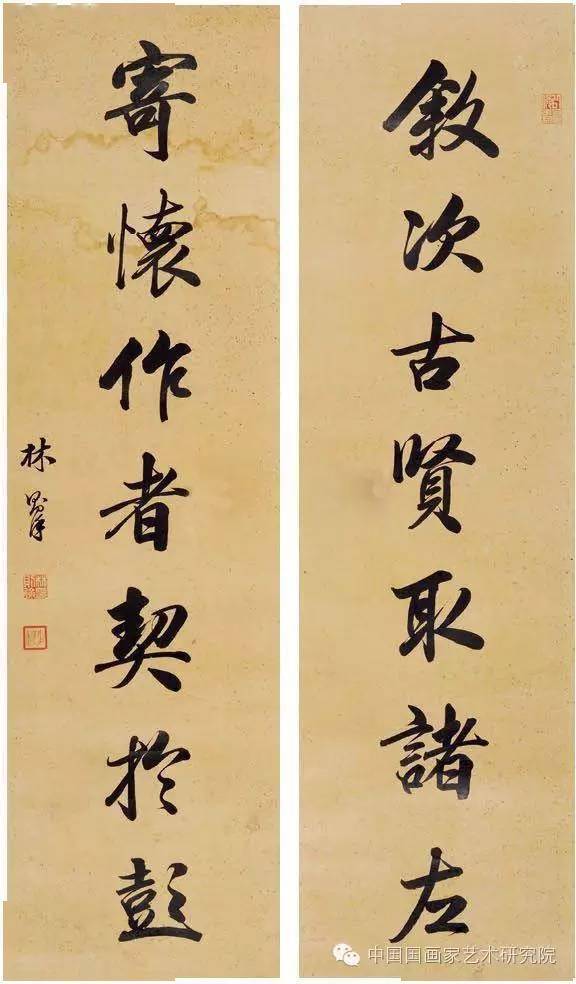 敘次古賢取諸左
寄懷作者契於彭
林則徐
中国国画家艺术研究院